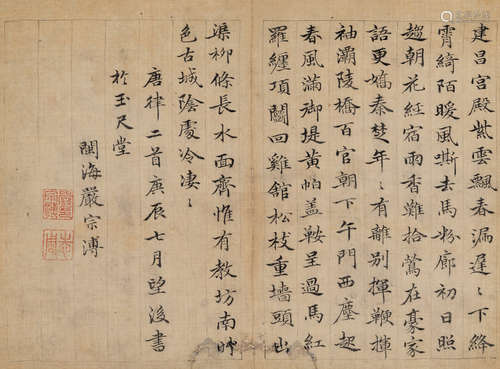 建昌宮殿紫雲飄春漏遲〻下絳
霄綺陌暖風嘶去馬粉廊初日照
趨朝花經宿雨香難拾鶯在豪家
語更嬌秦楚年〻有離別揮鞭揮
袖灞陵橋百官朝下午門西塵起
春風滿御堤黃帕盖鞍呈過馬紅
羅纏項鬪回雞舘松枝重墻頭出
渠柳條長水面齊惟有教坊南
色古城陰處冷淒〻
唐律二首庚辰七月望後書
於玉尺堂
閩海嚴宗溥